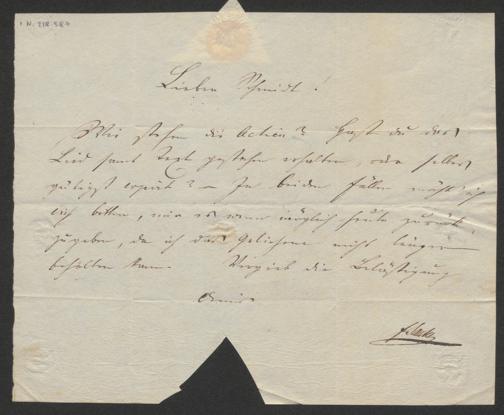 I.N. 218.587
Lieber Schmidt!
Wie stehen die Actien? Hast du das
Lied samt Text gestern erhalten, oder selbst
gütigst copirt? – In beiden Fällen möcht' ich
dich bitten, mir es wenn möglich heute zurück
zugeben, da ich das Geliehene nicht länger
behalten kann. Vergieb die Belästigung